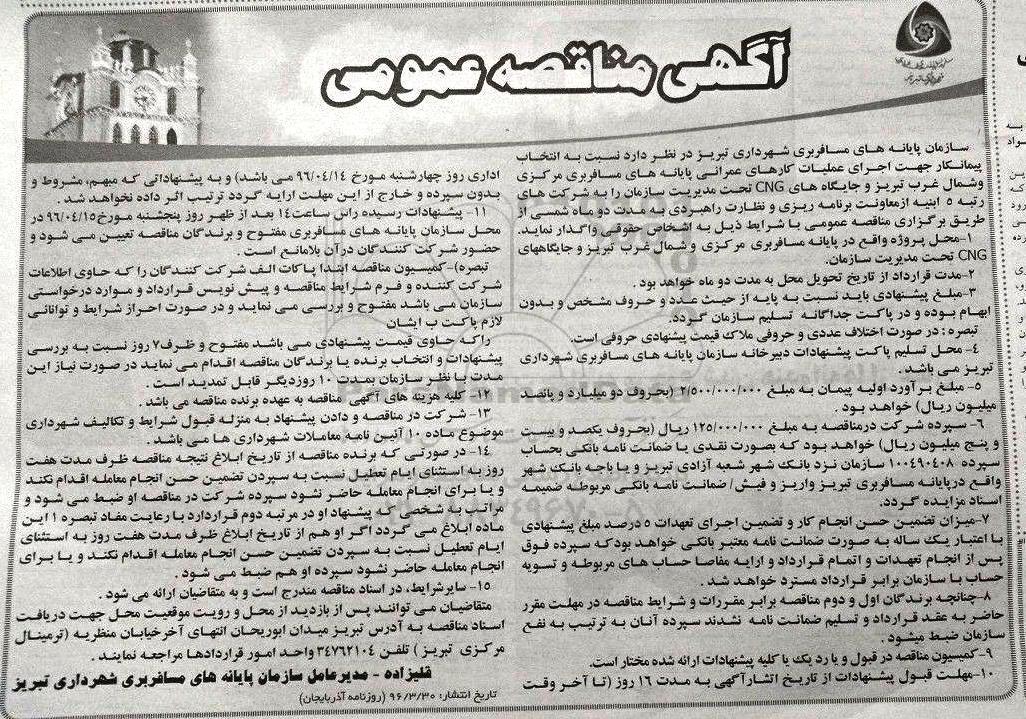 آگهی مناقصه عمومی
سازمان پایانه های مسافربری شهرداری تبریز در نظر دارد نسبت به انتخاب
پیمانکار جهت اجرای عملیات کارهای عمرانی پایانه های مسافربری مرکزی
وشمال غرب تبریز و جایگاه های CNG تحت مدیریت سازمان را به شرکت های
رتبه ۵ ابنیه ازمعاونت برنامه ریزی و نظارت راهبردی به مدت دو ماه شمسی از
طریق برگزاری مناقصه عمومی با شرایط ذیل به اشخاص حقوقی واگذار نماید.
۱-محل پروژه واقع در پایانه مسافربری مرکزی و شمال غرب تبریز و جایگاههای
CNG تحت مدیریت سازمان.
۲-مدت قرارداد از تاریخ تحویل محل به مدت دو ماه خواهد بود .
۳-مبلغ پیشنهادی باید نسبت به پایه از حیث عدد و حروف مشخص و بدون
ابهام بوده و در پاکت جداگانه تسلیم سازمان گردد.
تبصره : در صورت اختلاف عددی و حروفی ملاک قیمت پیشنهادی حروفی است.
۴- محل تسلیم پاکت پیشنهادات دبیرخانه سازمان پایانه های مسافربری شهرداری
تبریز می باشد .
۵- مبلغ برآورد اولیه پیمان به مبلغ ۲/۵۰۰/۰۰۰/۰۰۰ (بحروف دو میلیارد و پانصد
میلیون ریال) خواهد بود .
۶- سپرده شرکت درمناقصه به مبلغ ۱۲۵/۰۰۰/۰۰۰ ریال (بحروف یکصد و بیست
و پنج میلیون ریال) خواهد بود که بصورت نقدی یا ضمانت نامه بانکی بحساب
سپرده ۱۰۰۴۹۰۴۰۸ سازمان نزد بانک شهر شعبه آزادی تبریز و یا باجه بانک شهر
واقع درپایانه مسافربری تبریز واریز و فیش/ ضمانت نامه بانکی مربوطه ضمیمه
اسناد مزایده گردد.
۷-میزان تضمین حسن انجام کار و تضمین اجرای تعهدات ۵ درصد مبلغ پیشنهادی
با اعتبار یک ساله به صورت ضمانت نامه معتبر بانکی خواهد بودکه سپرده فوق
پس از انجام تعهدات و اتمام قرارداد و ارایه مفاصا حساب های مربوطه و تسویه
حساب با سازمان برابر قرارداد مسترد خواهد شد .
۸-چنانچه برندگان اول و دوم مناقصه برابر مقررات و شرایط مناقصه در مهلت مقرر
حاضر به عقد قرارداد و تسلیم ضمانت نامه نشدند سپرده آنان به ترتیب به نفع
سازمان ضبط میشود .
۹-کمیسیون مناقصه در قبول و یا رد یک یا کلیه پیشنهادات ارائه شده مختار است.
۱۰-مهلت قبول پیشنهادات از تاریخ انتشارآگهی به مدت ۱۶ روز (تا آخر وقت
اداری روز چهارشنبه مورخ ۹۶/۰۴/۱۴ می باشد) و به پیشنهاداتی که مبهم، مشروط و
بدون سپرده و خارج از این مهلت ارایه گردد ترتیب اثر داده نخواهد شد .
۱۱- پیشنهادات رسیده راس ساعت۱۴ بعد از ظهر روز پنجشنبه مورخ۹۶/۰۴/۱۵ در
محل سازمان پایانه های مسافربری مفتوح و برندگان مناقصه تعیین می شود و
حضور شرکت کنندگان درآن بلامانع است .
تبصره)-کمیسیون مناقصه ابتدا پاکات الف شرکت کنندگان را که حاوی اطلاعات
شرکت کننده و فرم شرایط مناقصه و پیش نویس قرارداد و موارد درخواستی
سازمان می باشد مفتوح و بررسی می نماید و در صورت احراز شرایط و توانائی
لازم پاکت ب ایشان
راکه حاوی قیمت پیشنهادی می باشد مفتوح و ظرف۷ روز نسبت به بررسی
پیشنهادات و انتخاب برنده یا برندگان مناقصه اقدام می نماید در صورت نیاز این
مدت با نظر سازمان بمدت ۱۰ روزدیگر قابل تمدید است .
۱۲- کلیه هزینه های آگهی مناقصه به عهده برنده مناقصه می باشد .
۱۳- شرکت در مناقصه و دادن پیشنهاد به منزله قبول شرایط و تکالیف شهرداری
موضوع ماده ۱۰ آئین نامه معاملات شهرداری ها می باشد .
۱۴- در صورتی که برنده مناقصه از تاریخ ابلاغ نتیجه مناقصه ظرف مدت هفت
روز به استثنای ایام تعطیل نسبت به سپردن تضمین حسن انجام معامله اقدام نکند
و یا برای انجام معامله حاضر نشود سپرده شرکت در مناقصه او ضبط می شود و
مراتب به شخصی که پیشنهاد او در مرتبه دوم قراردارد با رعایت مفاد تبصره ۱ این
ماده ابلاغ می گردد اگر او هم از تاریخ ابلاغ ظرف مدت هفت روز به استثنای
ایام تعطیل نسبت به سپردن تضمین حسن انجام معامله اقدام نکند و یا برای
انجام معامله حاضر نشود سپرده او هم ضبط می شود .
۱۵- سایرشرایط، در اسناد مناقصه مندرج است و به متقاضیان ارائه می شود .
متقاضیان می توانند پس از بازدید از محل و رویت موقعیت محل جهت دریافت
اسناد مناقصه به آدرس تبریز میدان ابوریحان انتهای آخرخیابان منظریه (ترمینال
مرکزی تبریز ) تلفن ۳۴۷۶۲۱۰۴ واحد امور قراردادها مراجعه نمایند .
قلیزاده - مدیرعامل سازمان پایانه های مسافربری شهرداری تبریز
تاریخ انتشار: ۹۶/۳/۳۰ (روزنامه آذربایجان)